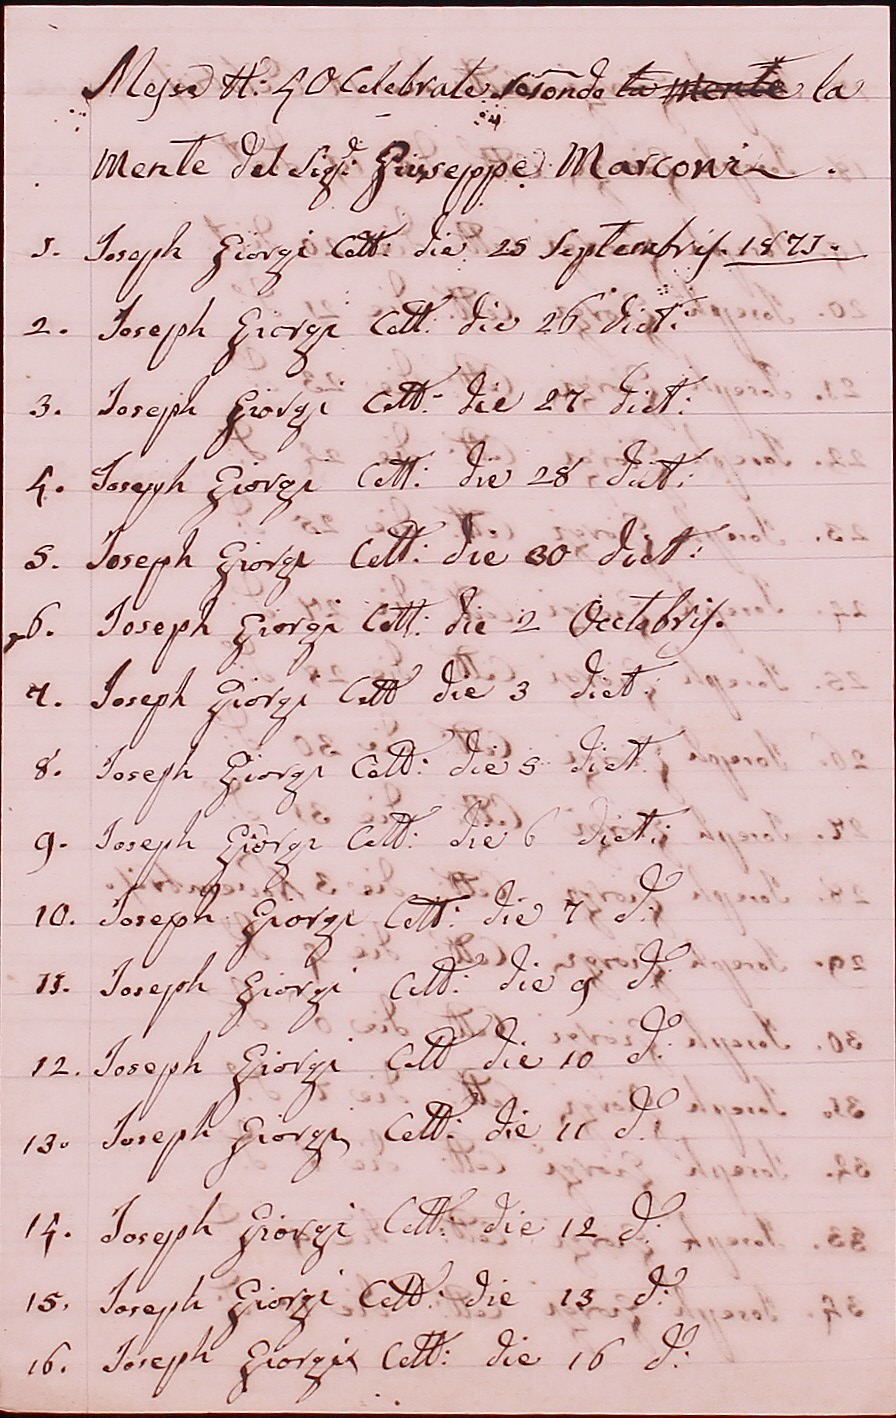 Messe N: 40 Celebrate secondo la mente la
mente del Sigr: Giuseppe Marconi.
1. Joseph Giorgi Cett: die 25 Septembris. 1871.
2. Joseph Giorgi Cett: die 26 dict:
3. Joseph Giorgi Cett: die 27 dict:
4. Joseph Giorgi Cett: die 28 dict:
5. Joseph Giorgi Cett: die 30 dict:
6. Joseph Giorgi Cett: die 2 Octobris.
7. Joseph Giorgi Cett die 3 dict:
8. Joseph Giorgi Cett: die 5 dict
9. Joseph Giorgi Cett: die 6 dict:
10. Joseph Giorgi Cett: die 7 d:
11. Joseph Giorgi Cett: die 9 d:
12. Joseph Giorgi Cett die 10 d:
13. Joseph Giorgi Cett: die 11 d:
14. Joseph Giorgi Cett: die 12 d:
15. Joseph Giorgi Cett: die 13 d:
16. Joseph Giorgi Cett: die 16 d: